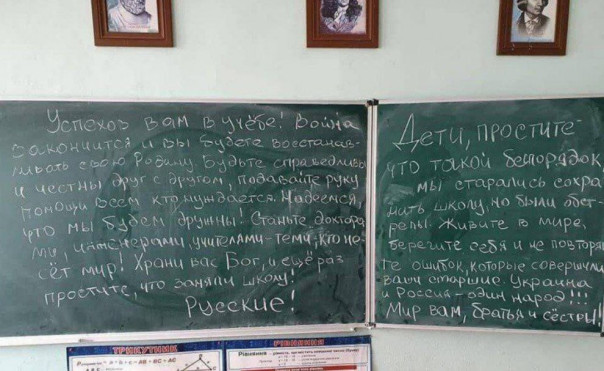 Успехов вам в учёбе! Война
закончится и вы будете восстанав-
ливать свою Родину. Будьте справедливы
и честны друг с другом, подавайте руку
помощи всем кто нуждается. Надеемся,
что мы будем дружны! Станьте доктора-
ми, инженерами, учителями-теми, кто не-
сёт мир! Храни вас Бог, и ещё раз
простите, что заняли школу!
Русские!
Дети, простите-
что такой беспорядок,
мы старались сохра-
нить школу, но были обст-
релы. Живите в мире,
берегите себя и не повторяй
те ошибок, которые совершили
ваши старшие Украина
и Россия-один народ!!!
Мир вам, братья и сёстры!
ТРИКУТНИК
РІВНЯННЯ